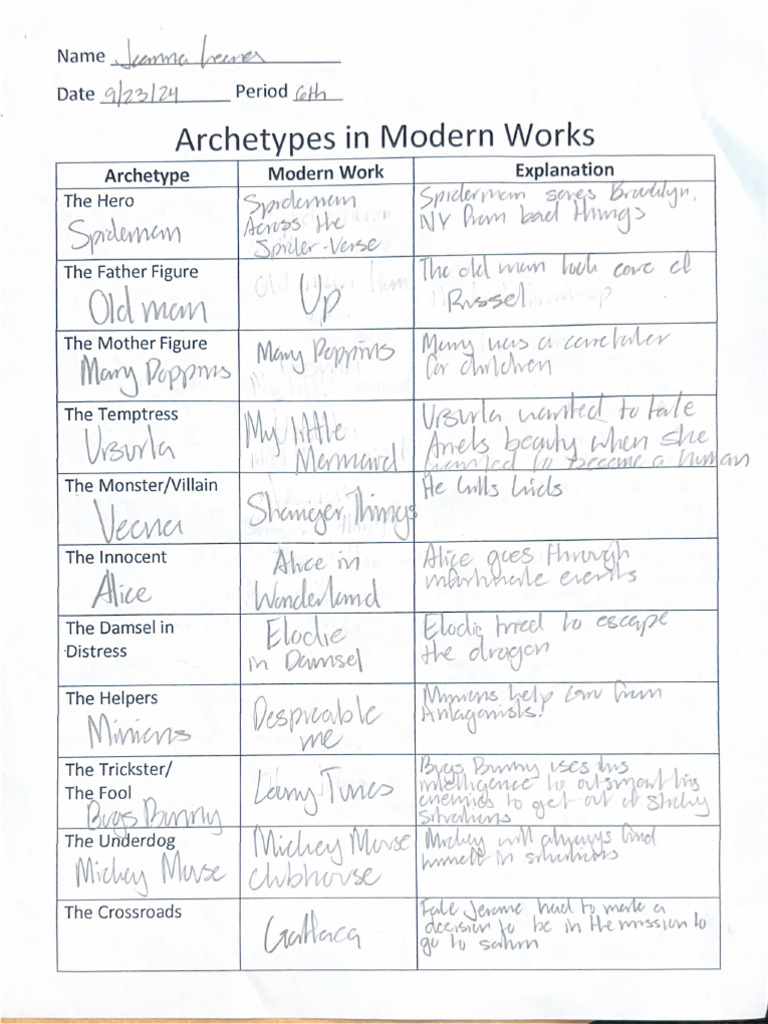 Name
Date 9/23/24 Period 6th
Archetypes in Modern Works
Archetype Modern Work Explanation
The Hero
Spideman
Spideman
Across the
Spider-Verse
Spiderman saves Brooklyn,
NY from bad things
The Father Figure
Old man
Up
The old man took care of
Russel
The Mother Figure
Mary Poppins
Mary Poppins
Mary was a caretaker
for children
The Temptress
Ursurla
My little
Mermaid
Ursurla wanted to take
Ariels beauty when she
wanted to become a human
The Monster/Villain
Vecna
Things
He kills kids
The Innocent
Alice
Alice in
Wonderland
Alice goes through
events
The Damsel in
Distress
Elodie
in Damsel
Elodie tried to escape
the dragon
The Helpers
Minions
Despicable
me
Minions help from
Antagonists.
The Trickster/
The Fool
Bugs Bunny
Looney Tunes
Bugs Bunny uses his
intelligence to outsmart his
enemies to get out of sticky
situations
The Underdog
Mickey Muse
Mickey Muse
clubhouse
Mickey will always find
himself in situations
The Crossroads
Gattaca
Fale Jerome had to make a
decision to be in the mission to
go to saturn